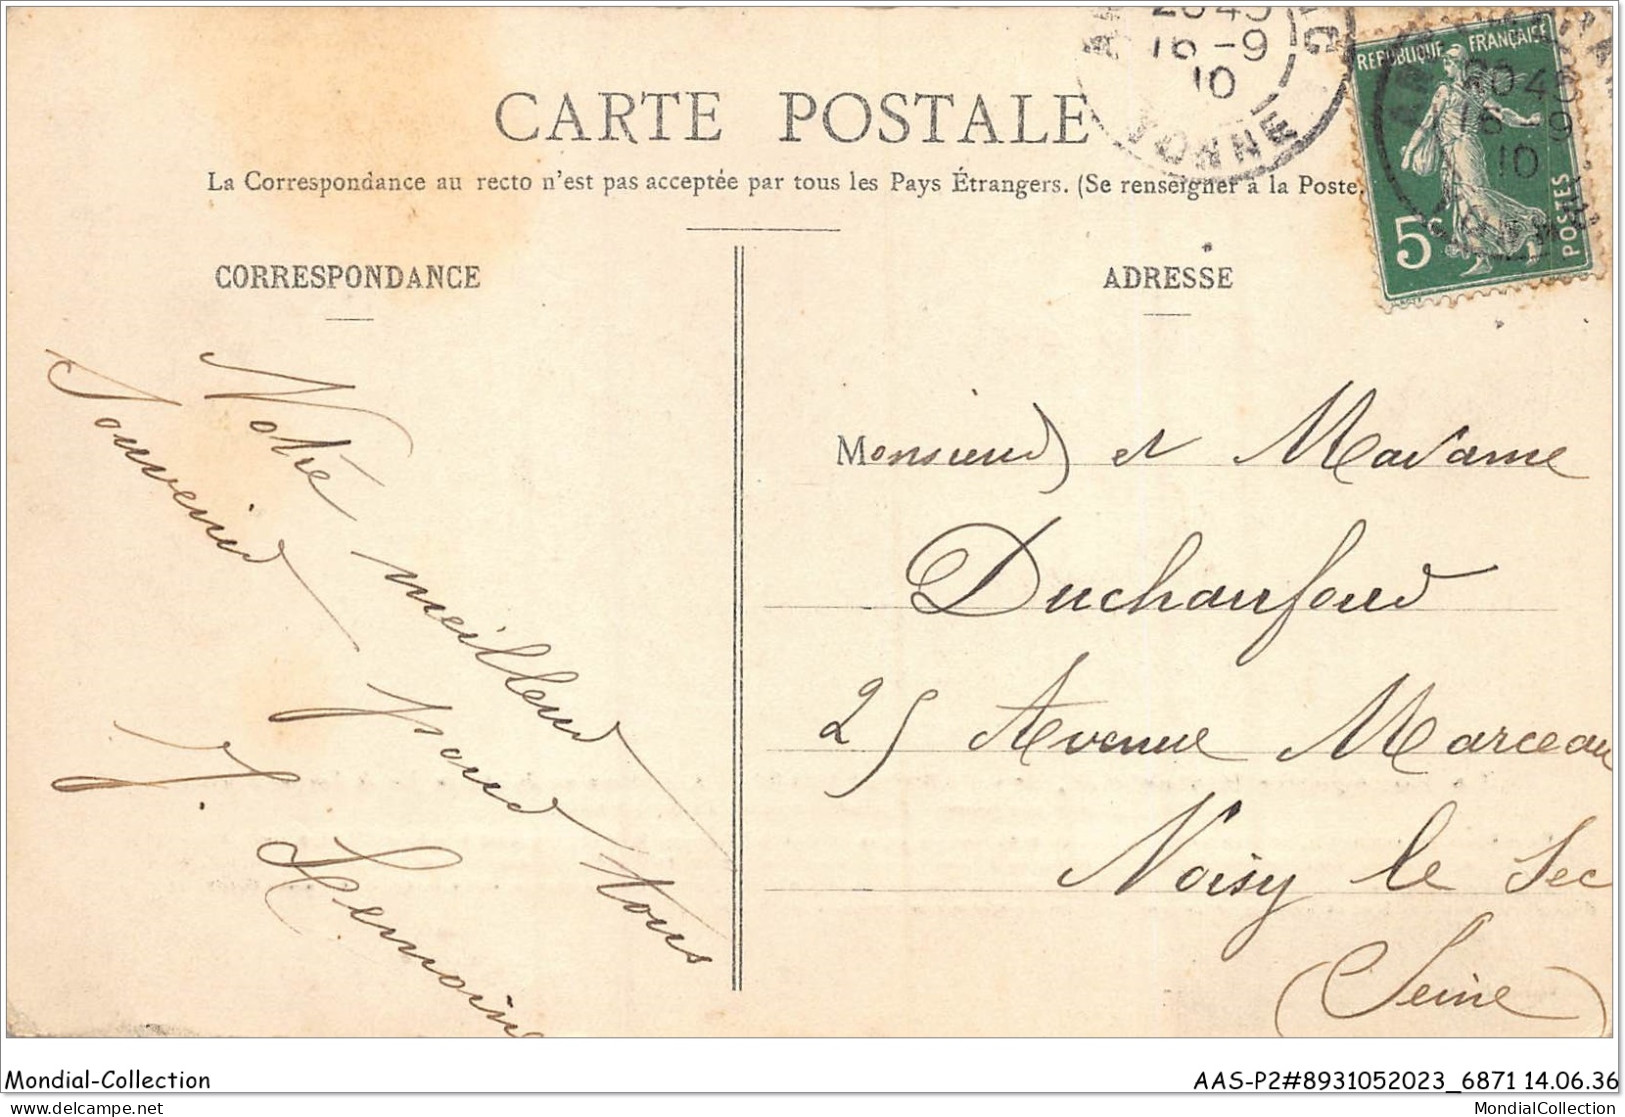 CARTE POSTALE
La Correspondance au recto n'est pas acceptée par tous les Pays Étrangers. (Se renseigner à la Poste.
CORRESPONDANCE
Notre meilleur
Souvenir pour tous
J. Lemoine
ADRESSE
Monsieur et Madame
Duchaufour
25 Avenue Marceau
Noisy le Sec
(Seine)
REPUBLIQUE FRANÇAISE
5c
POSTES
2045
16-9
10
YONNE
2045
16-9
10
Mondial-Collection
AAS-P2#8931052023_6871 14.06.36
delcampe.net
MondialCollection